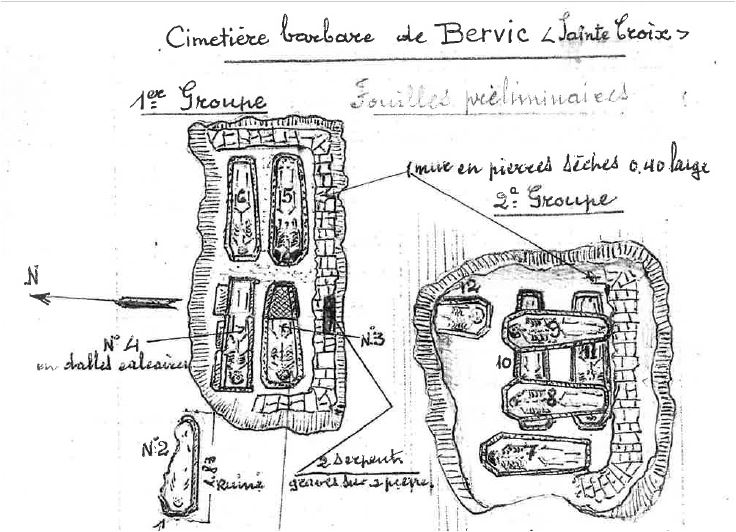 Cimetière barbare de Bervic <Sainte Croix>
1er Groupe
Fouilles préliminaires
mur en pierres sèches 0.40 large
2e Groupe
6
5
N
12
N° 4
en dalles calcaires
N°3
9
10
11
8
7
N°2
1.87
Ruiné
2 Serpents
gravés sur 2 pierres